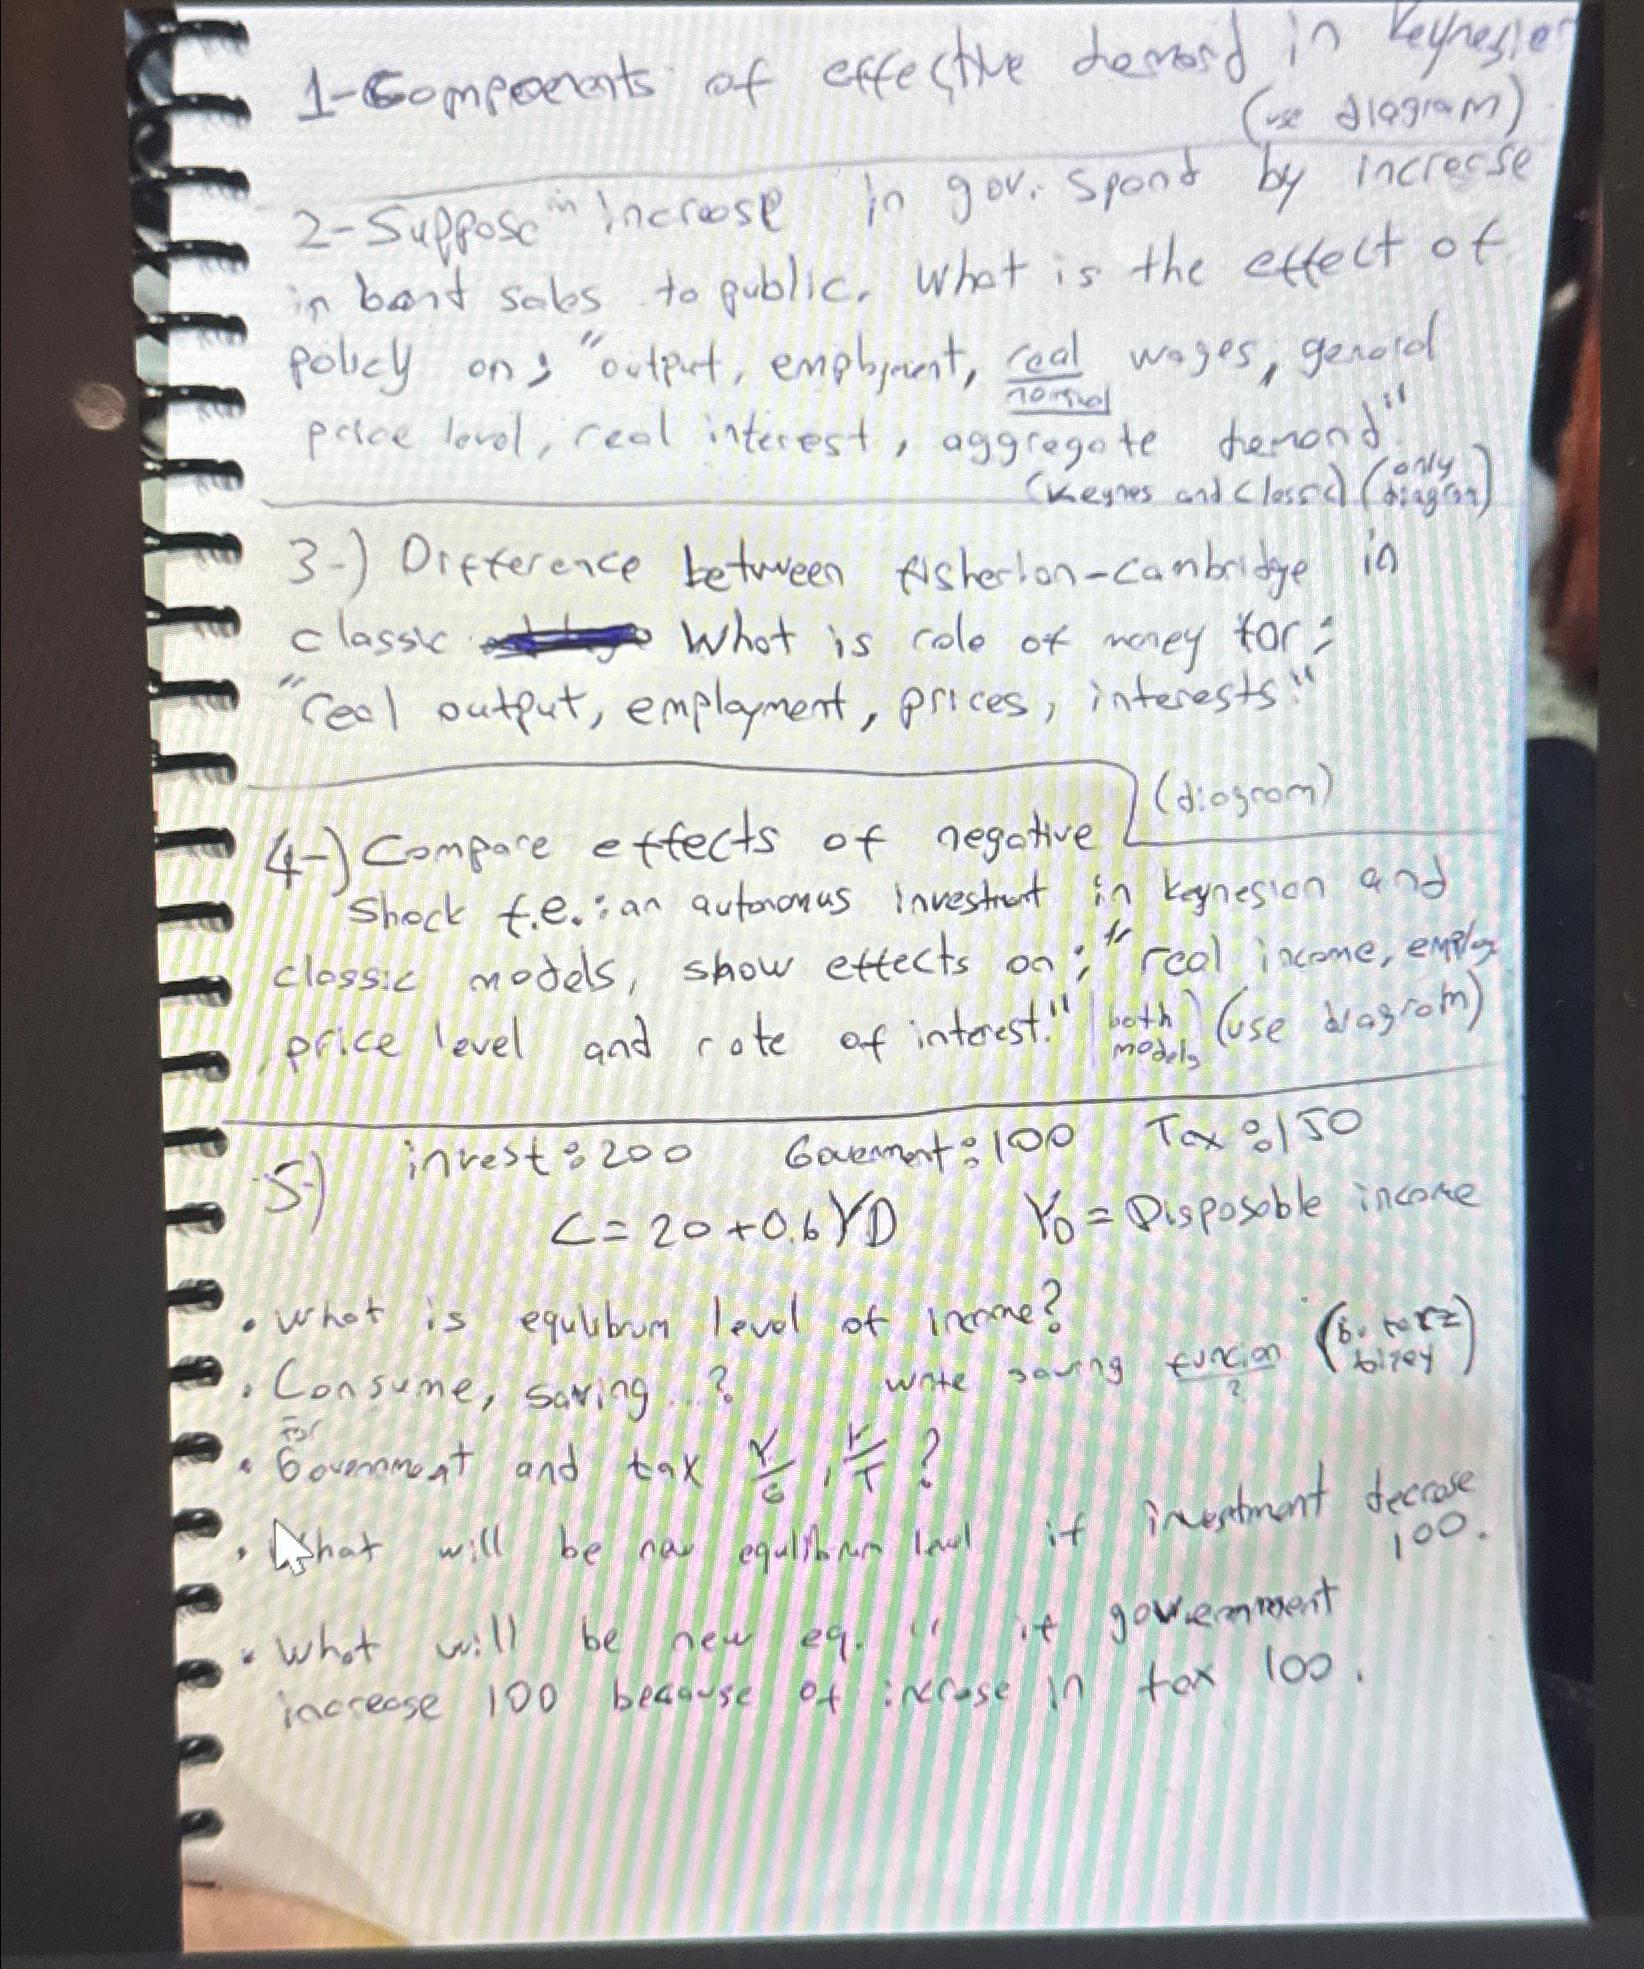 1-Components of effective demand in Keynesian
(use diagram)
2-Suppose in increase in gov. spend by increase
in bond sales to public. What is the effect of
policy on; "output, employment, real wages, general
nominal
price level, real interest, aggregate demand"
(Keynes and Classic) (only diagram)
3-) Difference between fisherian-cambridge in
classic What is role of money for;
"real output, employment, prices, interests"
(diagram)
4-) Compare effects of negative
shock f.e.: an autonomus investment in keynesian and
classic models, show effects on; "real income, employ
, price level and rate of interest." (both models) (use diagram)
5-) invest: 200 Government: 100 Tax: 150
C = 20 + 0.6 YD YD = Disposable income
• What is equlibrum level of income?
• Consume, saving..? write saving funcion (b. tarz bişey)
?
For
• Government and tax Y/G, Y/T ?
• What will be new equlibrum level if investment decrase
100.
• What will be new eq. " if government
increase 100 because of incrase in tax 100.